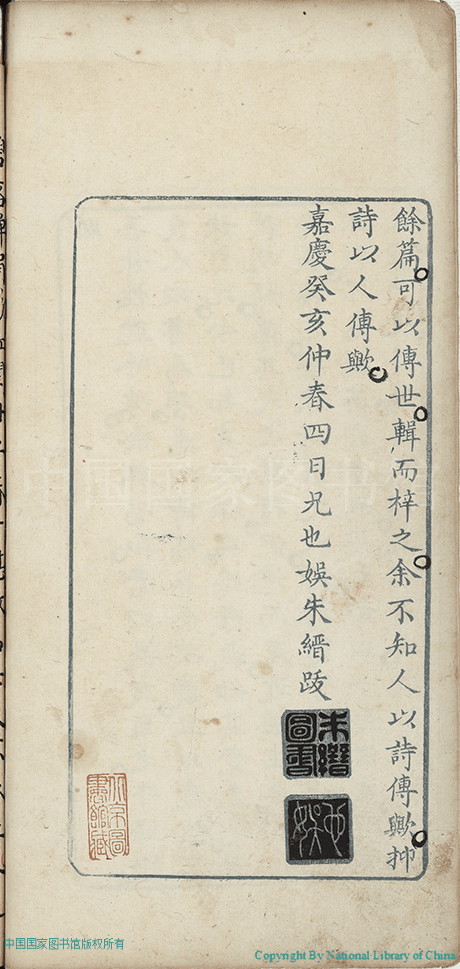 餘篇可以傳世輯而梓之余不知人以詩傳歟抑
詩以人傳歟
嘉慶癸亥仲春四日兄也娛朱縉跋
朱縉圖書
也娛
北京圖書館藏
中国国家图书馆
中国国家图书馆版权所有
Copyright By National Library of China